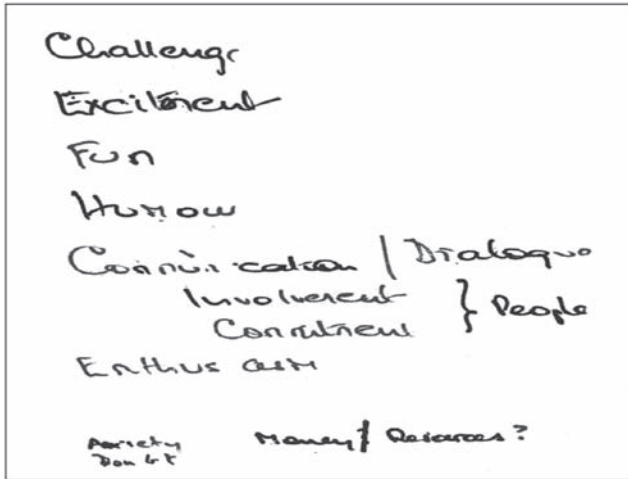 Challenge
Excitement
Fun
Humour
Communication / Dialogue
Involvement
Commitment } People
Enthusiasm
Anxiety Money / Resources?
Doubt